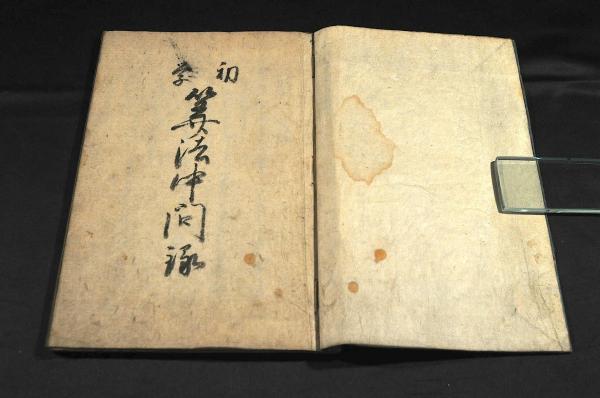 初学
算法仲问録